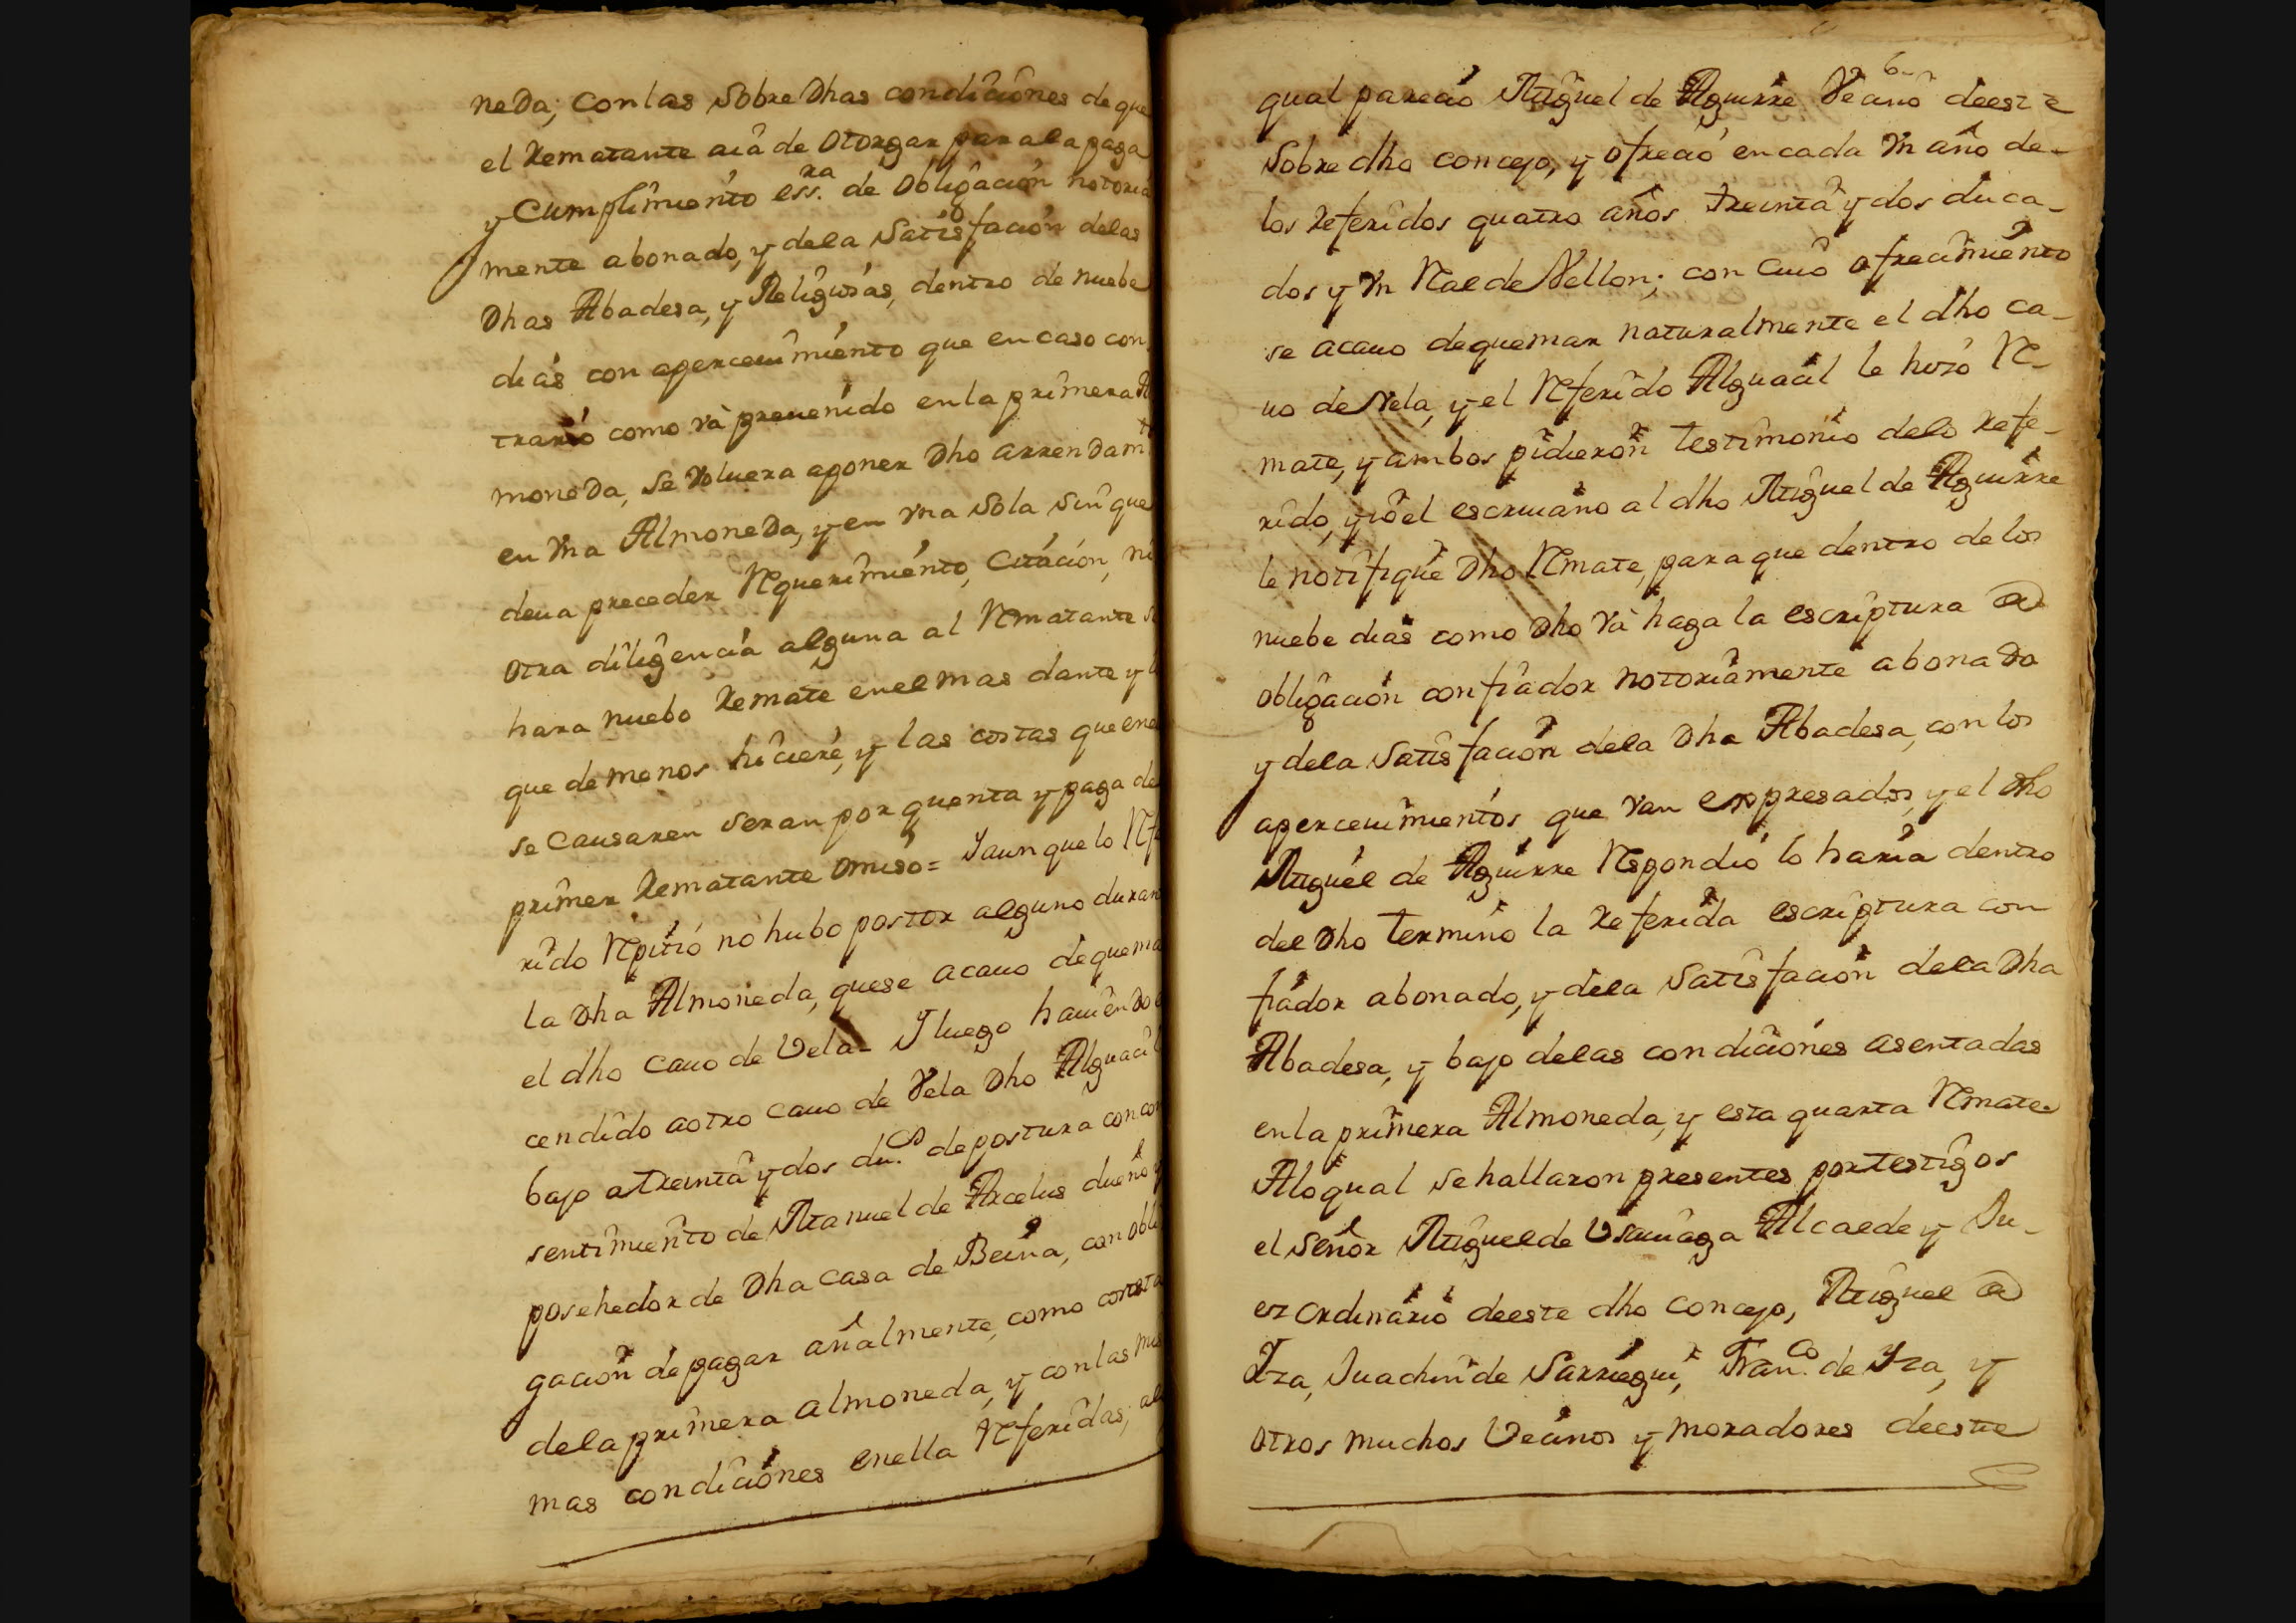 neda; con las sobre dhas condiciones de que
el rematante aia de otorgar para la paga
y cumplimiento ess.ra de obligacion notoria
mente abonado, y dela satisfacion delas
dhas Abadesa, y Religiosas, dentro de nuebe
dias con apercevimiento que en caso con
trario como va prevenido en la primera Al
moneda, se volvera a poner dho arrendam.to
en vna Almoneda, y en vna sola sin que
deva preceder requerimiento, citacion, ni
otra diligencia alguna al rematante se
hara nuebo remate en el mas dante y lo
que de menos hiciere, y las costas que en el
se causaren seran por quenta y paga del
primer rematante omiso = Y aunque lo refe
rido repitio no hubo postor alguno durante
la dha Almoneda, que se acavo de quemar
el dho cavo de vela - Y luego haviendo en
cendido a otro cavo de vela dho Alguacil
bajo a treinta y dos du.cos de postura con con
sentimiento de Manuel de Arcelus dueño y
posehedor de dha casa de Beina, con obli
gacion de pagar añalmente, como consta
dela primera almoneda, y con las mis
mas condiciones en ella referidas, al
6
qual parecio Miguel de Aguirre Vecino de este
sobre dho concejo, y ofrecio en cada vn año de-
los referidos quatro años treinta y dos duca-
dos y vn Real de Vellon; con cuio ofrecimiento
se acavo de quemar naturalmente el dho ca-
vo de Vela, y el referido Alguacil le hizo re-
mate, y ambos pidieron testimonio delo refe-
rido, y io el escrivano al dho Miguel de Aguirre
le notifique dho remate, para que dentro de los
nuebe dias como dho va haga la escriptura de
obligacion con fiador notoriamente abonado
y dela satisfacion dela dha Abadesa, con los
apercevimientos que van expresados, y el dho
Miguel de Aguirre respondio lo haria dentro
del dho termino la referida escriptura con
fiador abonado, y dela satisfacion dela dha
Abadesa, y bajo delas condiciones asentadas
en la primera Almoneda, y esta quarta remate
Alo qual se hallaron presentes por testigos
el señor Miguel de Vsaviaga Alcalde y Ju-
ez ordinario de este dho concejo, Miguel de
Yza, Juachin de Sarriegui, Fran.co de Yza, y
otros muchos Vecinos y moradores de este